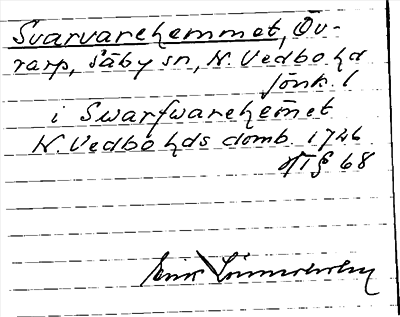 Svarvarehemmet, Öv-
rarp, Säby sn, N. Vedbo hd
Jönk. l
i Swarfwarehemet
N. Vedbo hds domb. 1726
§ 68
Erik